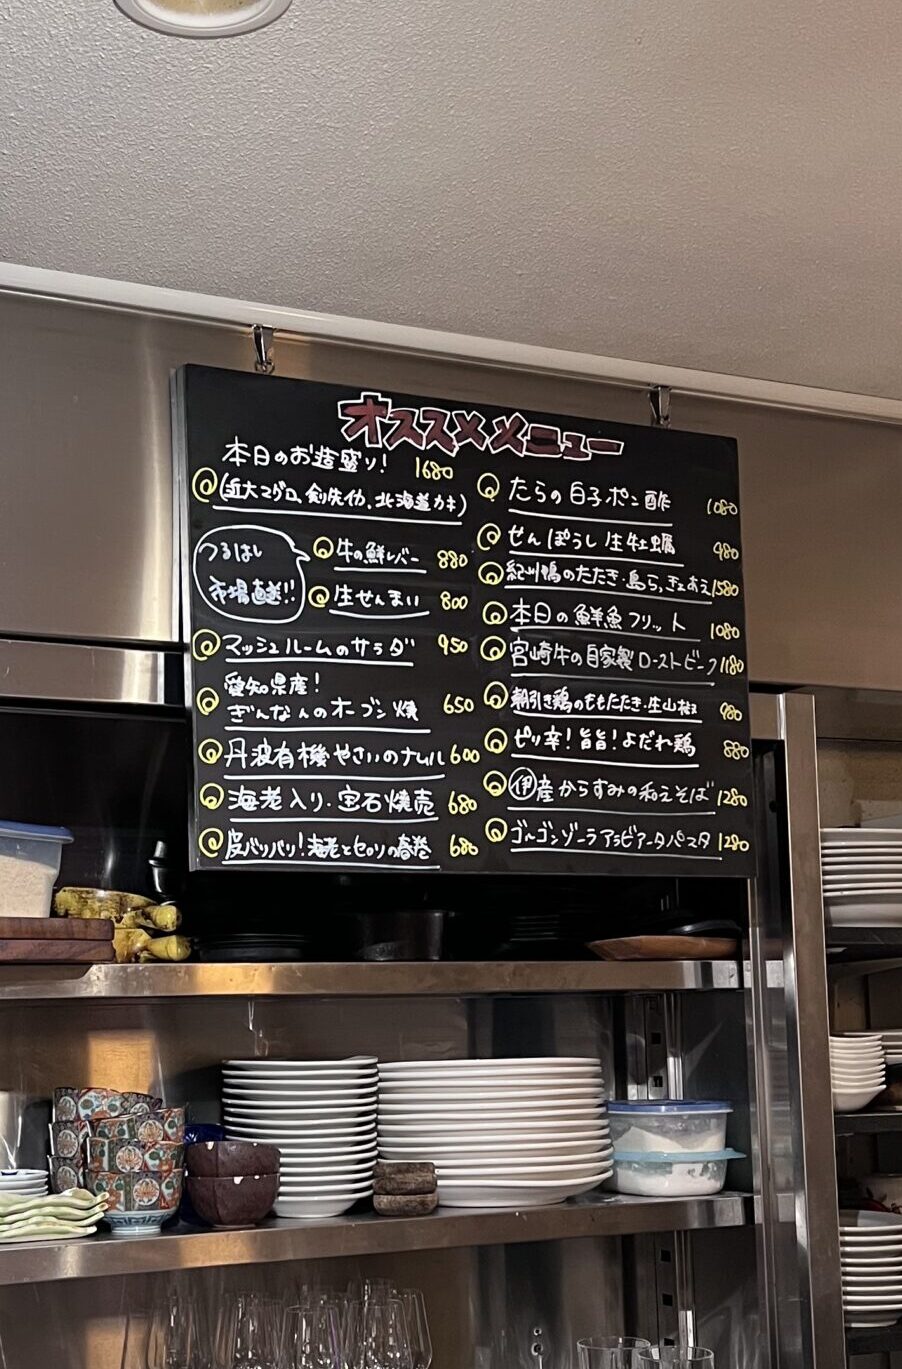 オススメメニュー
本日のお造盛り! 1680
(近大マグロ、剣先イカ、北海道カキ)
つるはし
市場直送!!
牛の鮮レバー 880
生せんまい 800
マッシュルームのサラダ 950
愛知県産!
ぎんなんのオーブン焼 650
丹波有機やさいのナムル 600
海老入り・宝石焼売 680
皮パリパリ!海老とセロリの春巻 680
たらの白子ポン酢 1080
せんぽうし生牡蠣 980
紀州鴨のたたき・島らっきょあえ 1580
本日の鮮魚フリット 1080
宮崎牛の自家製ローストビーフ 1180
朝引き鶏のももたたき・生山椒 980
ピリ辛!旨旨!よだれ鶏 880
伊産からすみの和えそば 1280
ゴルゴンゾーラアラビアータパスタ 1280